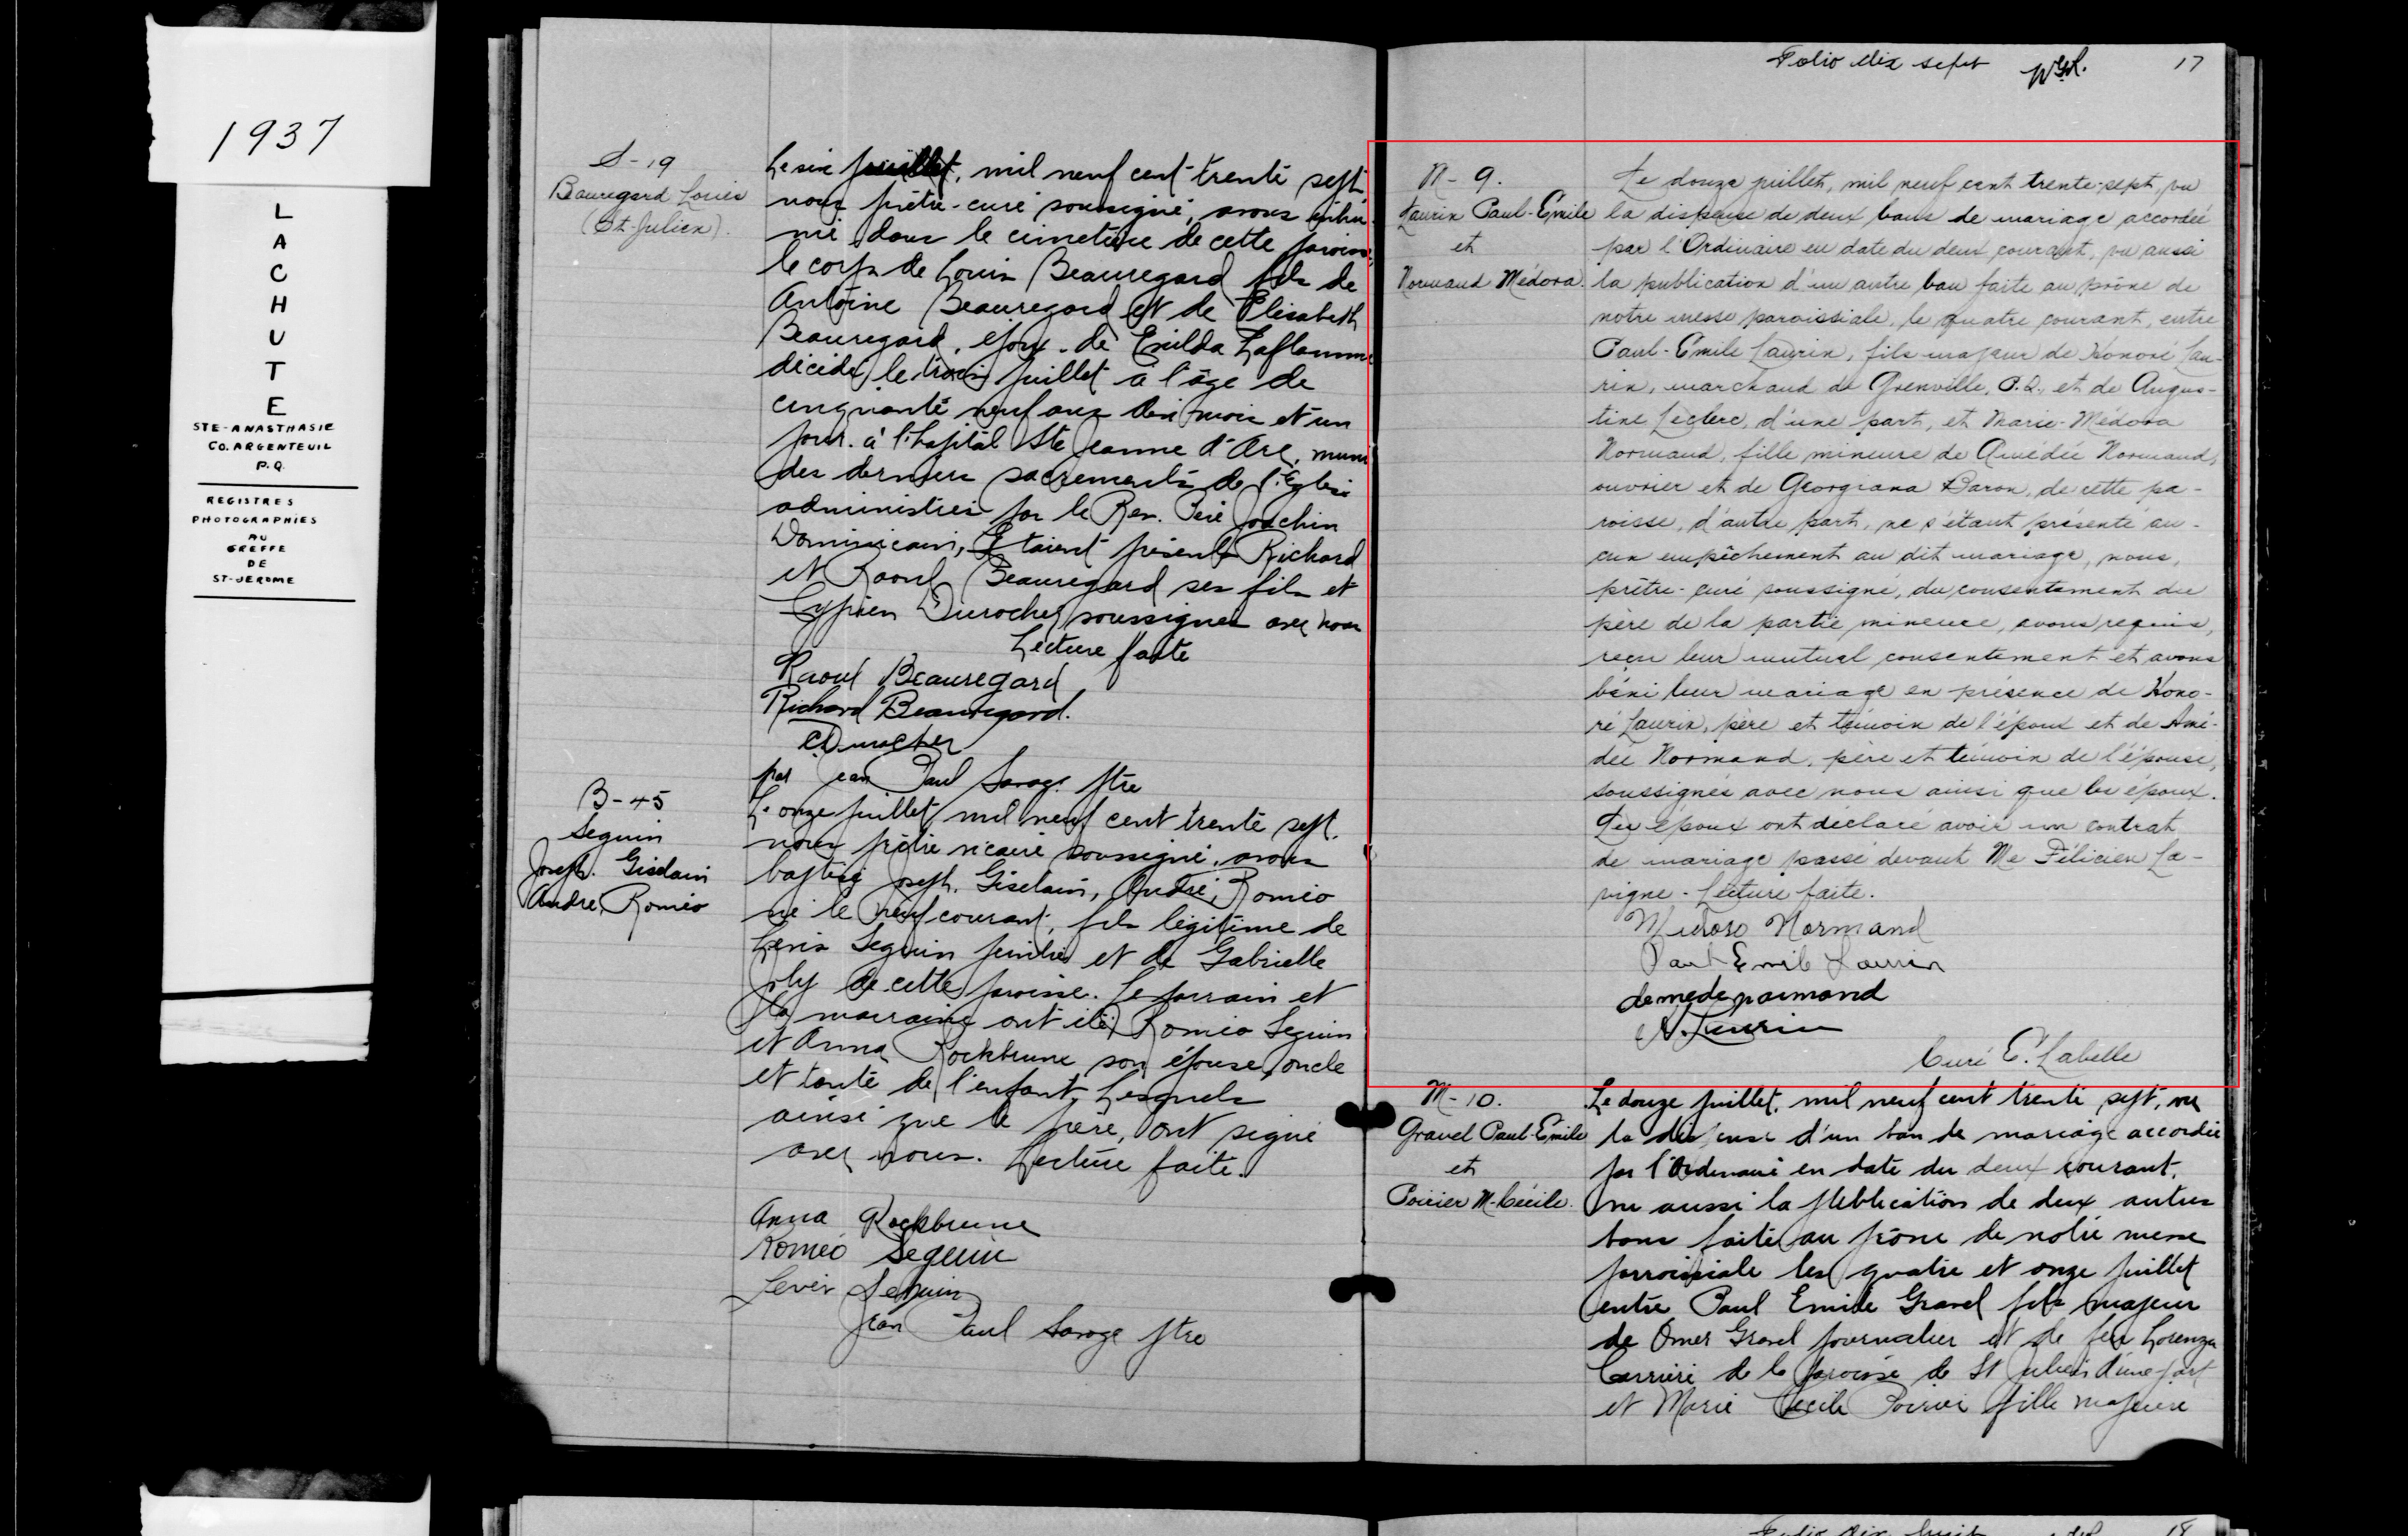 1937
L
A
C
H
U
T
E
STE-ANASTHASIE
CO. ARGENTEUIL
P.Q.
REGISTRES
PHOTOGRAPHIES
AU
GREFFE
DE
ST-JEROME
S-19
Beauregard Louis
(St-Julien).
Le six juillet, mil neuf cent trente sept
nous prêtre-curé soussigné, avons inhu-
mé dans le cimetière de cette paroisse,
le corps de Louis Beauregard fils de
Antoine Beauregard et de Elisabeth
Beauregard, époux de Exilda Laflamme
décédé le trois juillet à l'âge de
cinquante neuf ans mois et un
jour à l'hopital Ste Jeanne d'Arc, muni
des derniers sacrements de l'Eglise
administrés par le Rev. Père Joachin
Dominicain, Etaient présents Richard
et Raoul Beauregard ses fils et
Cyprien Durocher soussignés avec nous
Lecture faite
Raoul Beauregard
Richard Beauregard.
C. Durocher
par Jean Paul Savage ptre
B-45
Seguin
Joseph. Giselain
André Roméo
Le onze juillet mil neuf cent trente sept.
nous prêtre vicaire soussigné, avons
baptisé Joseph. Giselain, André, Roméo
né le neuf courant, fils légitime de
Levis Seguin et de Gabrielle
Joly de cette paroisse. Le parrain et
la marraine ont été Roméo Seguin
et Anna Rockbrune son épouse, oncle
et tante de l'enfant, Lesquels
ainsi que le père, ont signé
avec nous. Lecture faite.
Anna Rockbrune
Roméo Seguin
Levis Seguin
Jean Paul Savage ptre
Folio dix sept 17
M- 9.
Laurin Paul-Émile
et
Normand Médora.
Le douze juillet, mil neuf cent trente-sept, vu
la dispense de deux bans de mariage accordée
par l'Ordinaire en date du deux courant, vu aussi
la publication d'un autre ban faite au prône de
notre messe paroissiale, le quatre courant, entre
Paul-Émile Laurin, fils majeur de Honoré Lau-
rin, marchand de Grenville, P.Q., et de Augus-
tine Leclerc, d'une part, et Marie-Médora
Normand, fille mineure de Amédée Normand,
ouvrier et de Georgiana Daron, de cette pa-
roisse, d'autre part, ne s'étant présenté au-
cun empêchement au dit mariage, nous,
prêtre-curé soussigné, du consentement du
père de la partie mineure, avons requis,
reçu leur mutuel consentement et avons
béni leur mariage en présence de Hono-
ré Laurin, père et témoin de l'époux et de Amé-
dée Normand, père et témoin de l'épouse,
soussignés avec nous ainsi que les époux.
Les époux ont déclaré avoir un contrat
de mariage passé devant Me Félicien La-
vigne. Lecture faite.
Médora Normand
Paul Emile Laurin
Amede normand
H. Laurin
Curé E. Labelle
M-10.
Gravel Paul-Émile
et
Poirier M-Cécile.
Le douze juillet, mil neuf cent trente sept, vu
la dispense d'un ban de mariage accordée
par l'Ordinaire en date du deux courant,
vu aussi la publication de deux autres
bans faite au prône de notre messe
paroissiale les quatre et onze juillet
entre Paul Emile Gravel fils majeur
de Omer Gravel journalier et de feu Lorenza
Carrière de la paroisse de St Julien d'une part
et Marie Cécile Poirier fille majeure
18